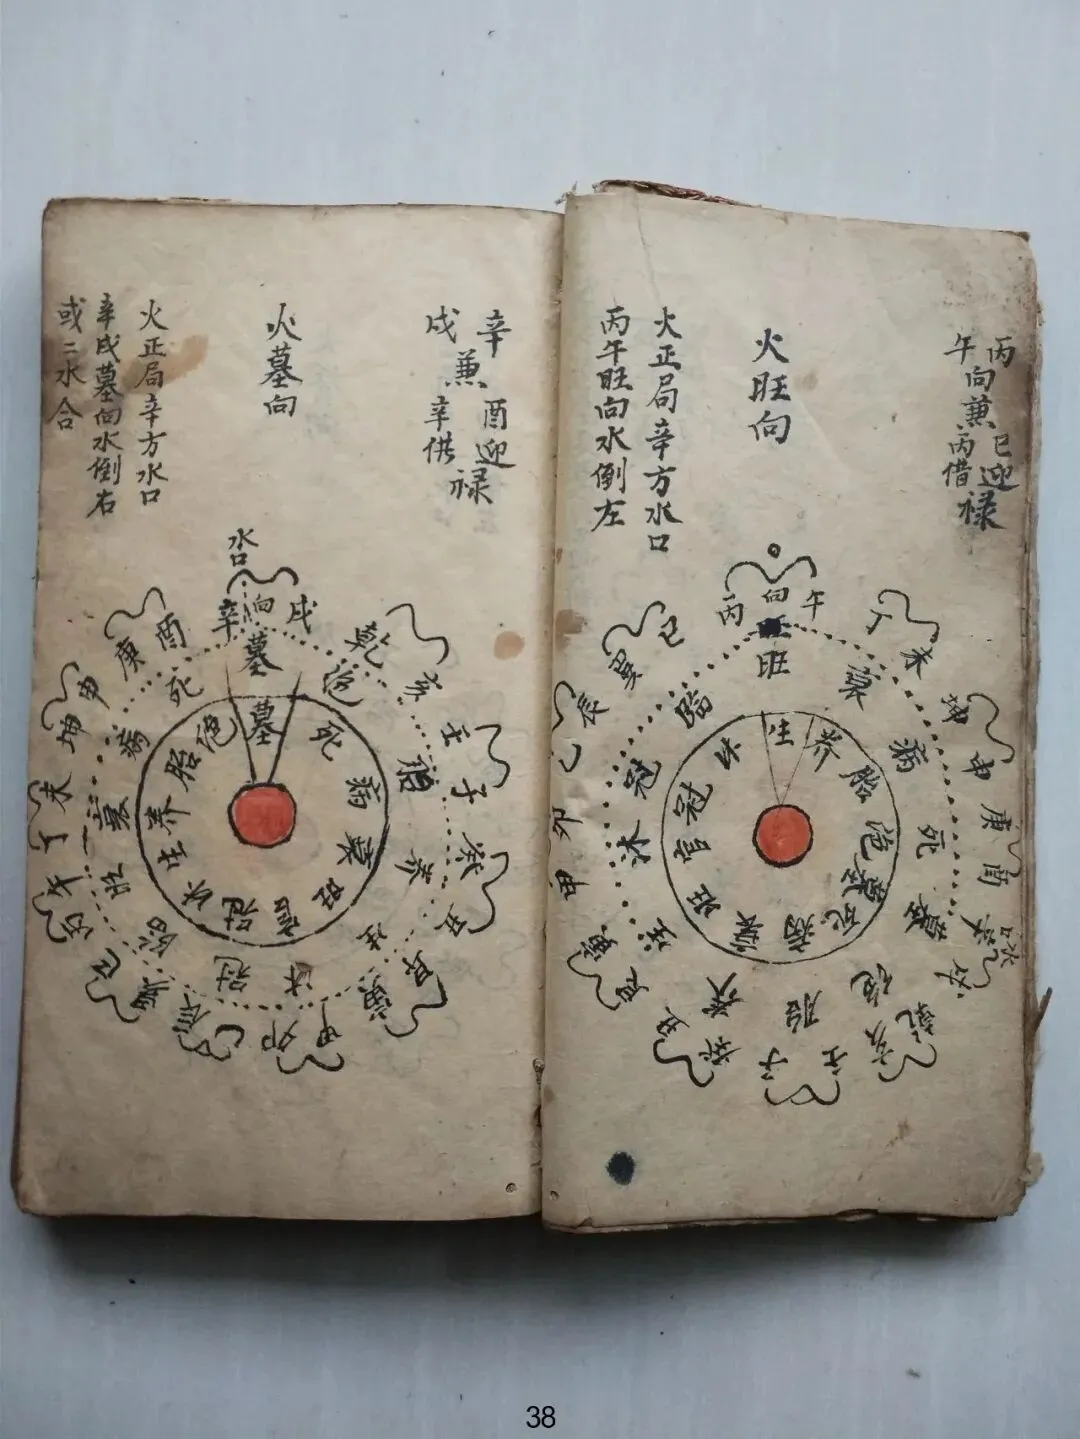 丙午向兼丙借
巳迎禄
火旺向
火正局辛方水口
丙午旺向水倒左
丙 向 午
丁 未
坤 申
庚 酉
辛 戌
水口
乾 亥
壬 子
癸 丑
艮 寅
甲 卯
辰
巽 巳
旺 衰 病 死 墓 绝 胎 养 生 沐 冠 临
生 养 胎 绝 墓 死 病 衰 旺 官 冠 沐
辛戌兼辛供
酉迎禄
火墓向
火正局辛方水口
辛戌墓向水倒右
或二水合
水口
辛 向 戌
乾 亥
壬 子
癸 丑
艮 寅
甲 卯
乙 辰
巽 巳
丙 午
丁 未
坤 申
庚 酉
墓 绝 胎 养 生 沐 冠 临 旺 衰 病 死
墓 死 病 衰 旺 官 冠 沐 生 养 胎 绝
38